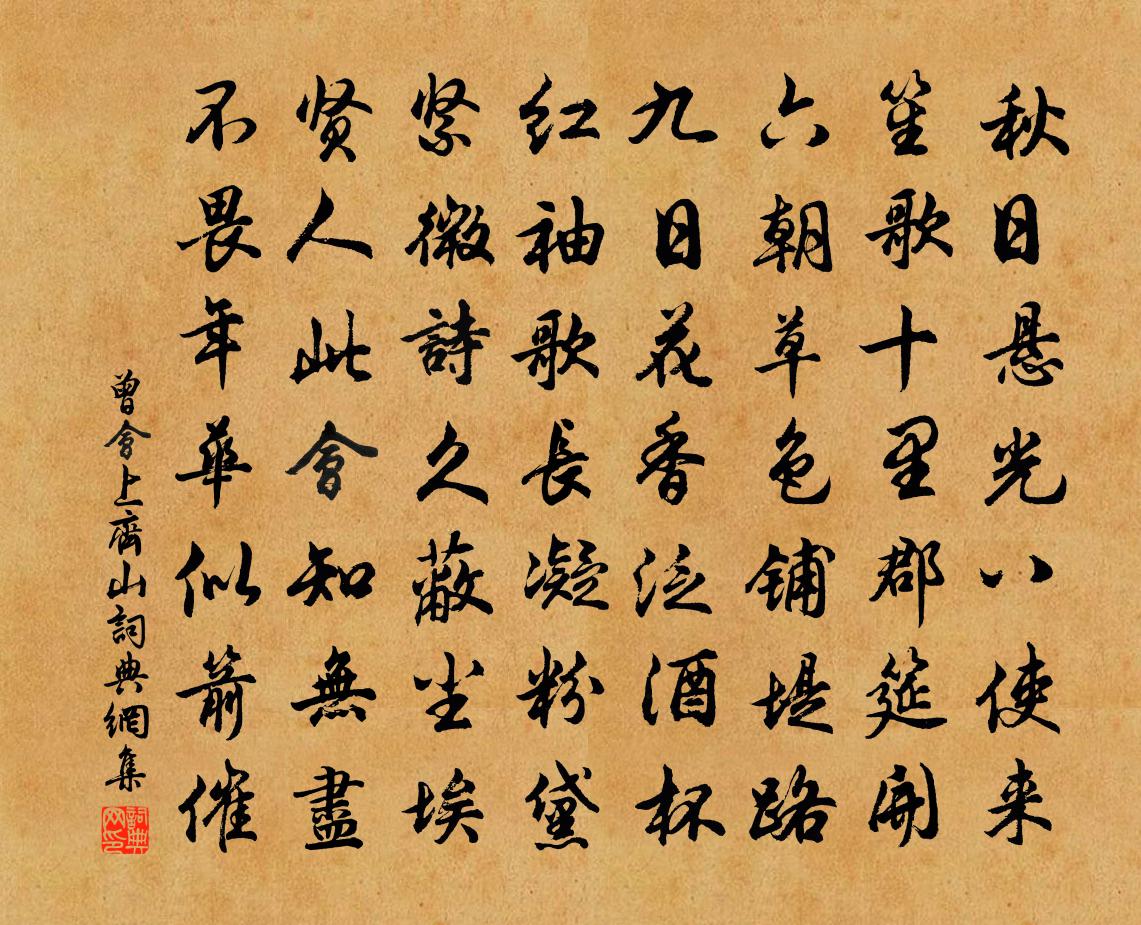 秋日悬光八使来
笙歌十里郡筵开
六朝草色铺堤路
九日花香泛酒杯
红袖歌長凝粉黛
紧微詩久蔽尘埃
贤人此會知無盡
不畏年華似箭催
曾會上齊山詞典網集
詞典网印